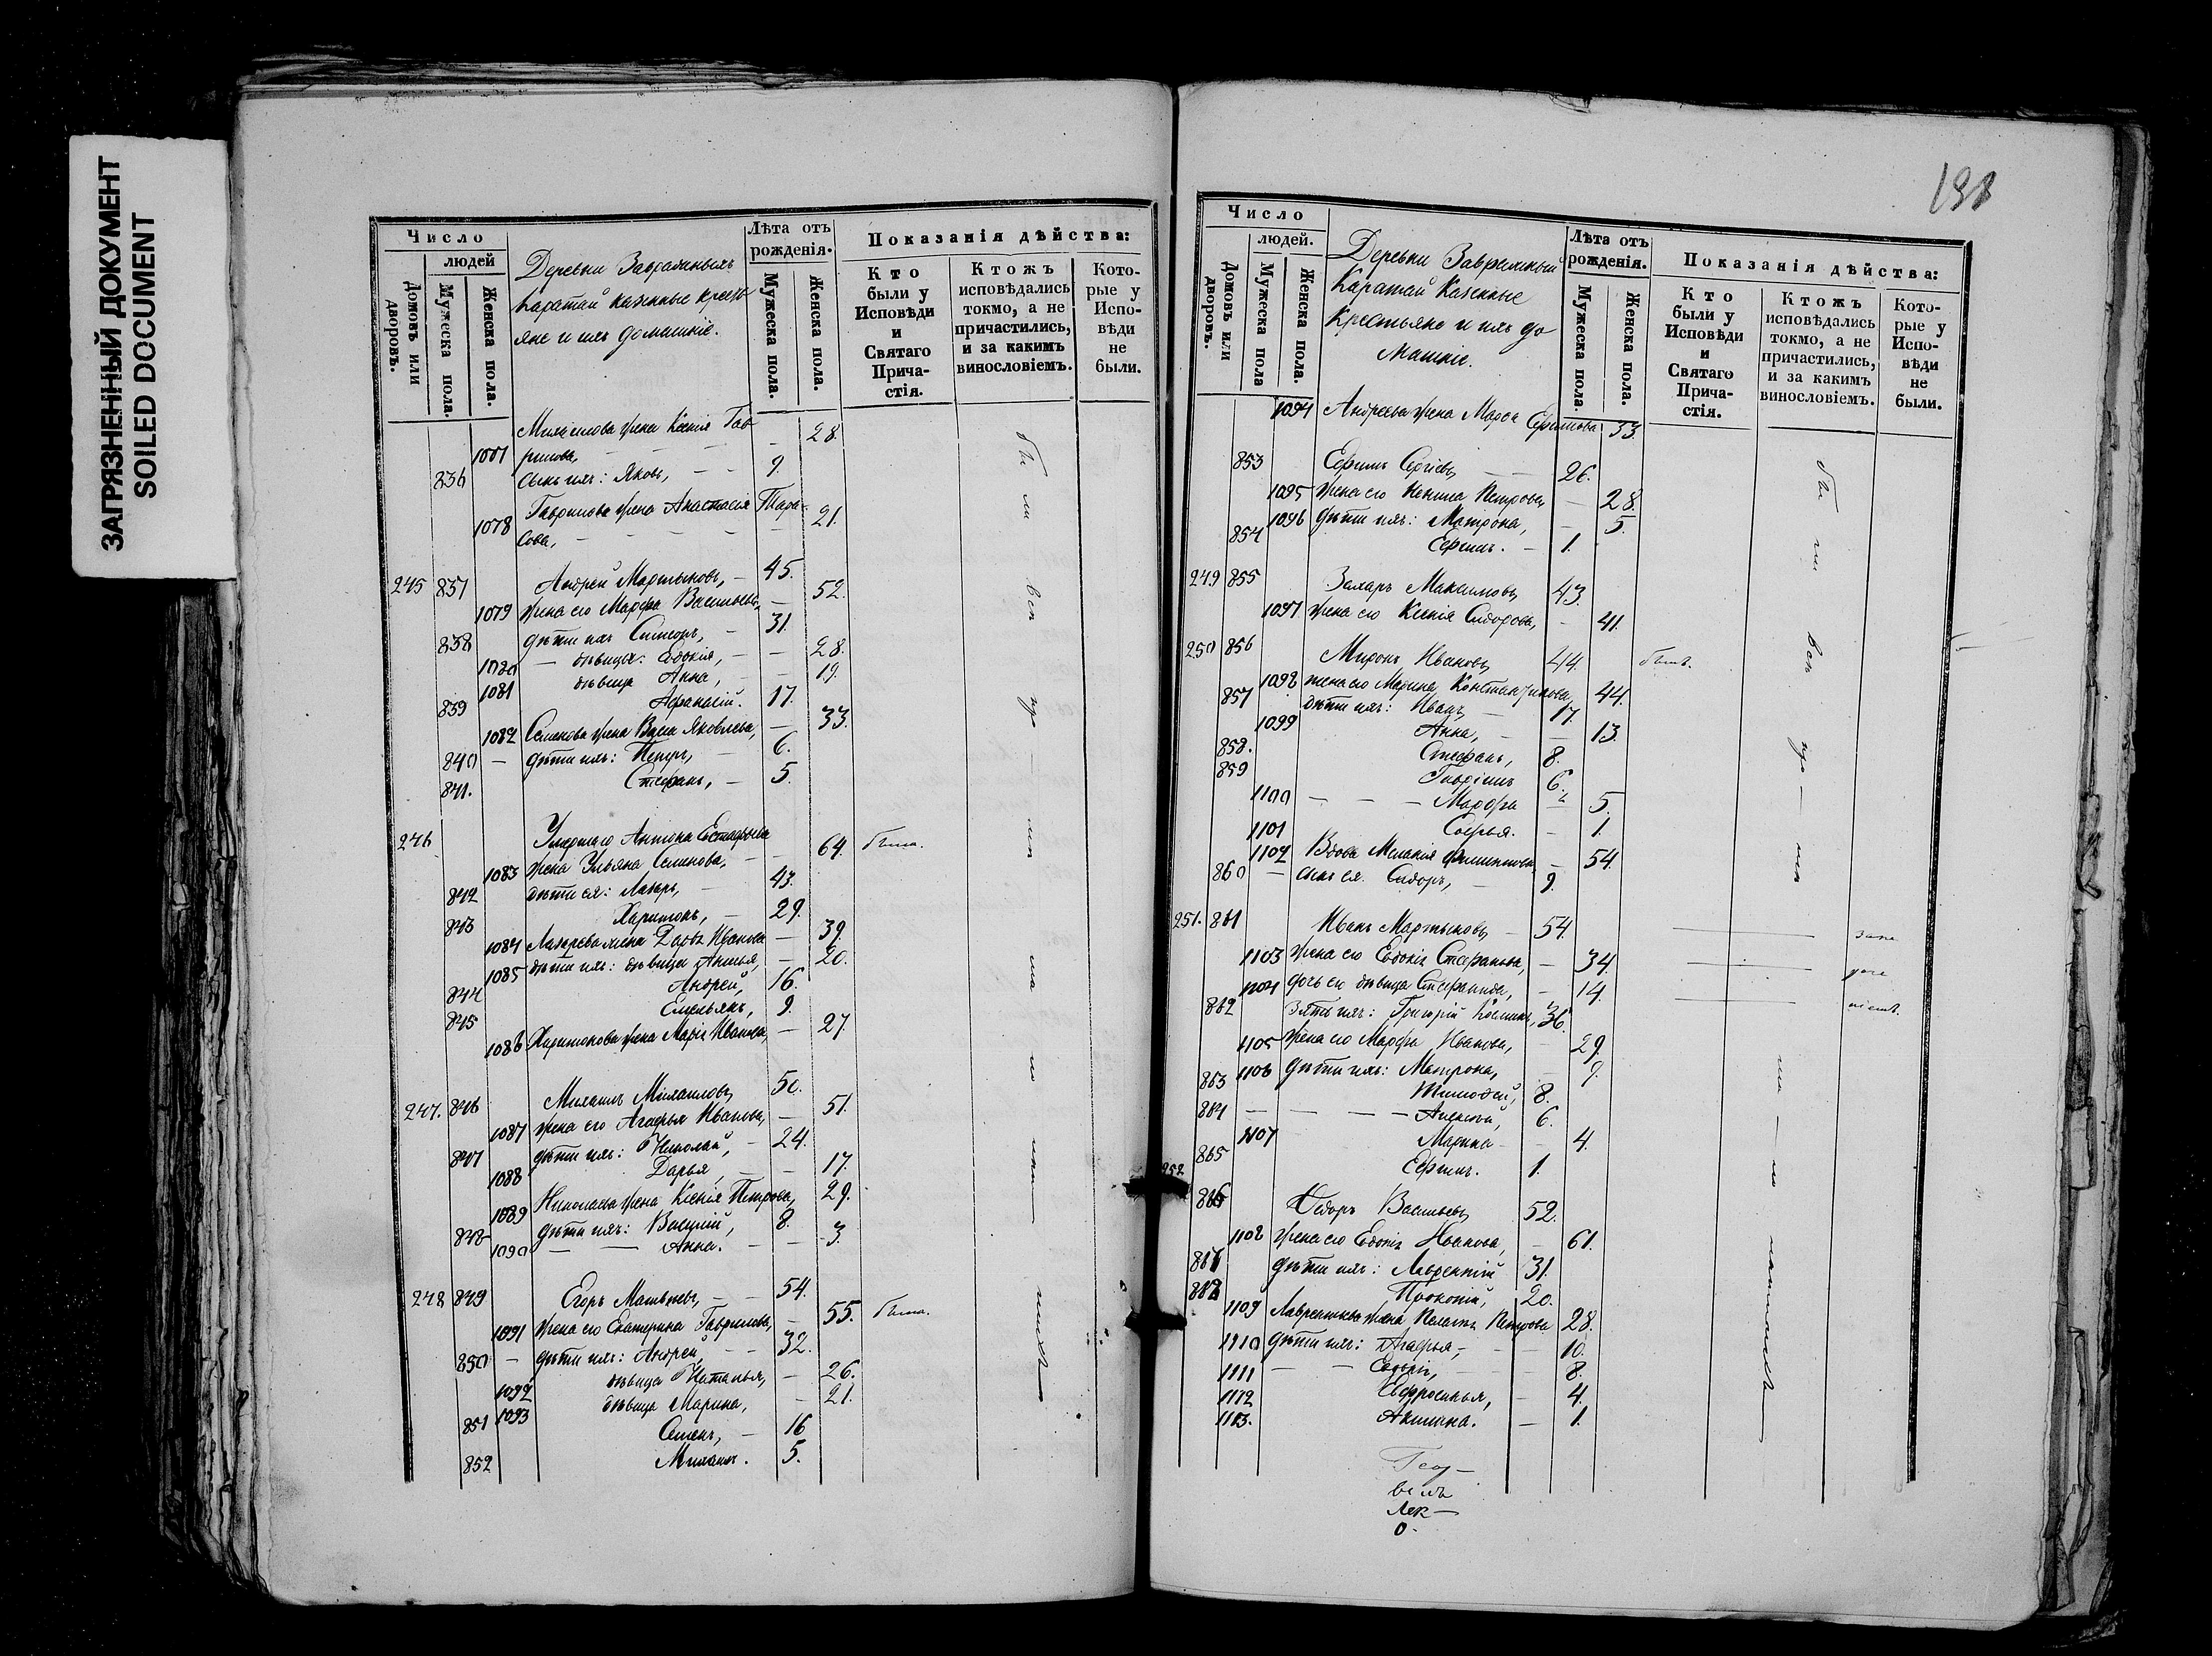 ЗАГРЯЗНЕННЫЙ ДОКУМЕНТ
SOILED DOCUMENT
Число
людей
Домовъ или дворовъ.
Мужеска пола.
Женска пола.
Деревни
Каратай казенные кресть
яне и ихъ домашніе.
Лѣта отъ рожденія.
Мужеска пола.
Женска пола.
Показанія дѣйства:
Кто были у Исповѣди и Святаго Причастія.
Ктожъ исповѣдались токмо, а не причастились, и за какимъ винословіемъ.
Которые у Исповѣди не были.
Михаилова жена Ксенія Гав 28.
рилова,
836 Сынъ ихъ: Яковъ, 9.
Гаврилова жена Анастасія Тара- 21.
1078 сова,
245 837 Андрей Мартыновъ, 45.
1079 жена его Марфа Васильева, 52.
838 дѣти ихъ Симеонъ, 31.
1080 дѣвица: Евдокія, 28.
1081 дѣвица Анна, 19.
839 Афанасій. 17.
1082 Семенова жена Васса Яковлева, 33.
840 дѣти ихъ: Петръ, 6.
841. Стефанъ, 5.
246 Умершаго Антона Естафьева
1083 жена Ульяна Семенова, 64. была.
842 дѣти ея: Лазарь, 43.
843 Харитонъ, 29.
1084 Лазарева жена Дарья Иванова 39
1085 дѣти ихъ: дѣвица Анисья, 20.
844 Андрей, 16.
845 Емельянъ, 9.
1086 Харитонова жена Марія Иванова, 27.
247. 846 Михаилъ Михаиловъ, 50.
1087 жена его Агафья Иванова, 51.
847 дѣти ихъ: Николай, 24.
1088 Дарья, 17.
1089 Николаева жена Ксенія Петрова, 29.
848 дѣти ихъ: Василій, 8.
1090 Анна. 3.
248 849 Егоръ Матвѣевъ, 54.
1091 жена его Екатерина Гаврилова, 55. была.
850 дѣти ихъ: Андрей, 32.
1092 дѣвица Наталья, 26.
1093 дѣвица Марина, 21.
851 Семенъ, 16
852 Михаилъ. 5.
Число
людей.
Домовъ или дворовъ.
Мужеска пола
Женска пола.
Деревни
Каратай Казенные
Крестьяне и ихъ до
машніе.
Лѣта отъ рожденія.
Мужеска пола.
Женска пола.
Показанія дѣйства:
Кто были у Исповѣди и Святаго Причастія.
Ктожъ исповѣдались токмо, а не причастились, и за какимъ винословіемъ.
Которые у Исповѣди не были.
1094 Андреева жена Марфа Ефимова 33.
853 Ефимъ Сергіевъ, 26.
1095 жена его Петрова 28.
1096 дѣти ихъ: Матрона, 5.
854 Ефимъ. 1.
249 855 Захаръ Максимовъ 43.
1097 жена его Ксенія Сидорова, 41.
250 856 Миронъ Ивановъ 44. былъ.
1098 жена его Марина Константинова, 44.
857 дѣти ихъ: Иванъ, 17.
1099 Анна, 13.
858. Стефанъ, 8.
859 Гавріилъ 6.
1100 Марфа 5.
1101 Софья. 1.
1102 Вдова Меланія Филиппова 54.
860 сынъ ея Сидоръ, 9.
251. 861 Иванъ Мартыновъ 54.
1103 жена его Евдокія Стефанова, 34.
1104 дочь его дѣвица Стефанида, 14.
862 зять ихъ: Григорій Козминъ, 36.
1105 жена его Марфа Иванова, 29.
1106 дѣти ихъ: Матрона, 9.
863 Тимофей, 8.
864 Алексѣй, 6.
1107 Марина 4.
865 Ефимъ. 1.
252
866 Ѳедоръ Васильевъ 52.
1108 жена его Евдокія Иванова, 61.
867 дѣти ихъ: Лаврентій 31.
868 Прокопій, 20.
1109 Лаврентьева жена Пелагія Петрова 28.
1110 дѣти ихъ: Агафья, 10.
1111 Евдокія, 8.
1112 Ефросинья, 4.
1113. Акилина. 1.